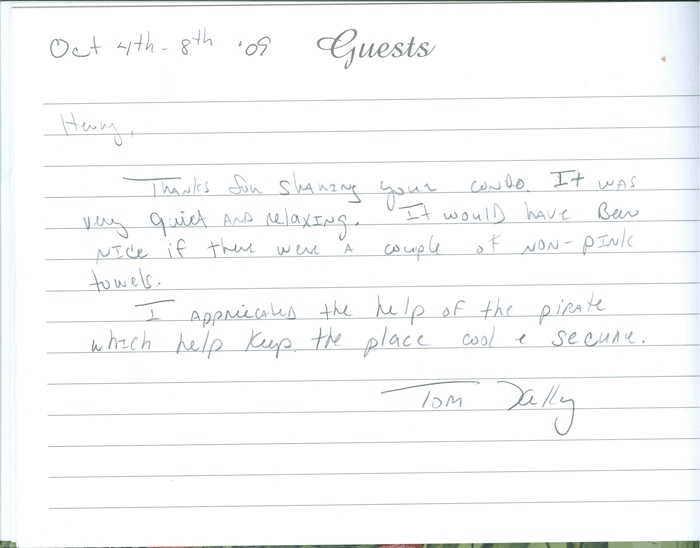 Oct 4th - 8th '09 Guests
Henry,
Thanks for sharing your condo. It was
very quiet and relaxing. It would have been
nice if there were a couple of non-pink
towels.
I appricated the help of the pirate
which help keep the place cool & secure.
Tom Dally